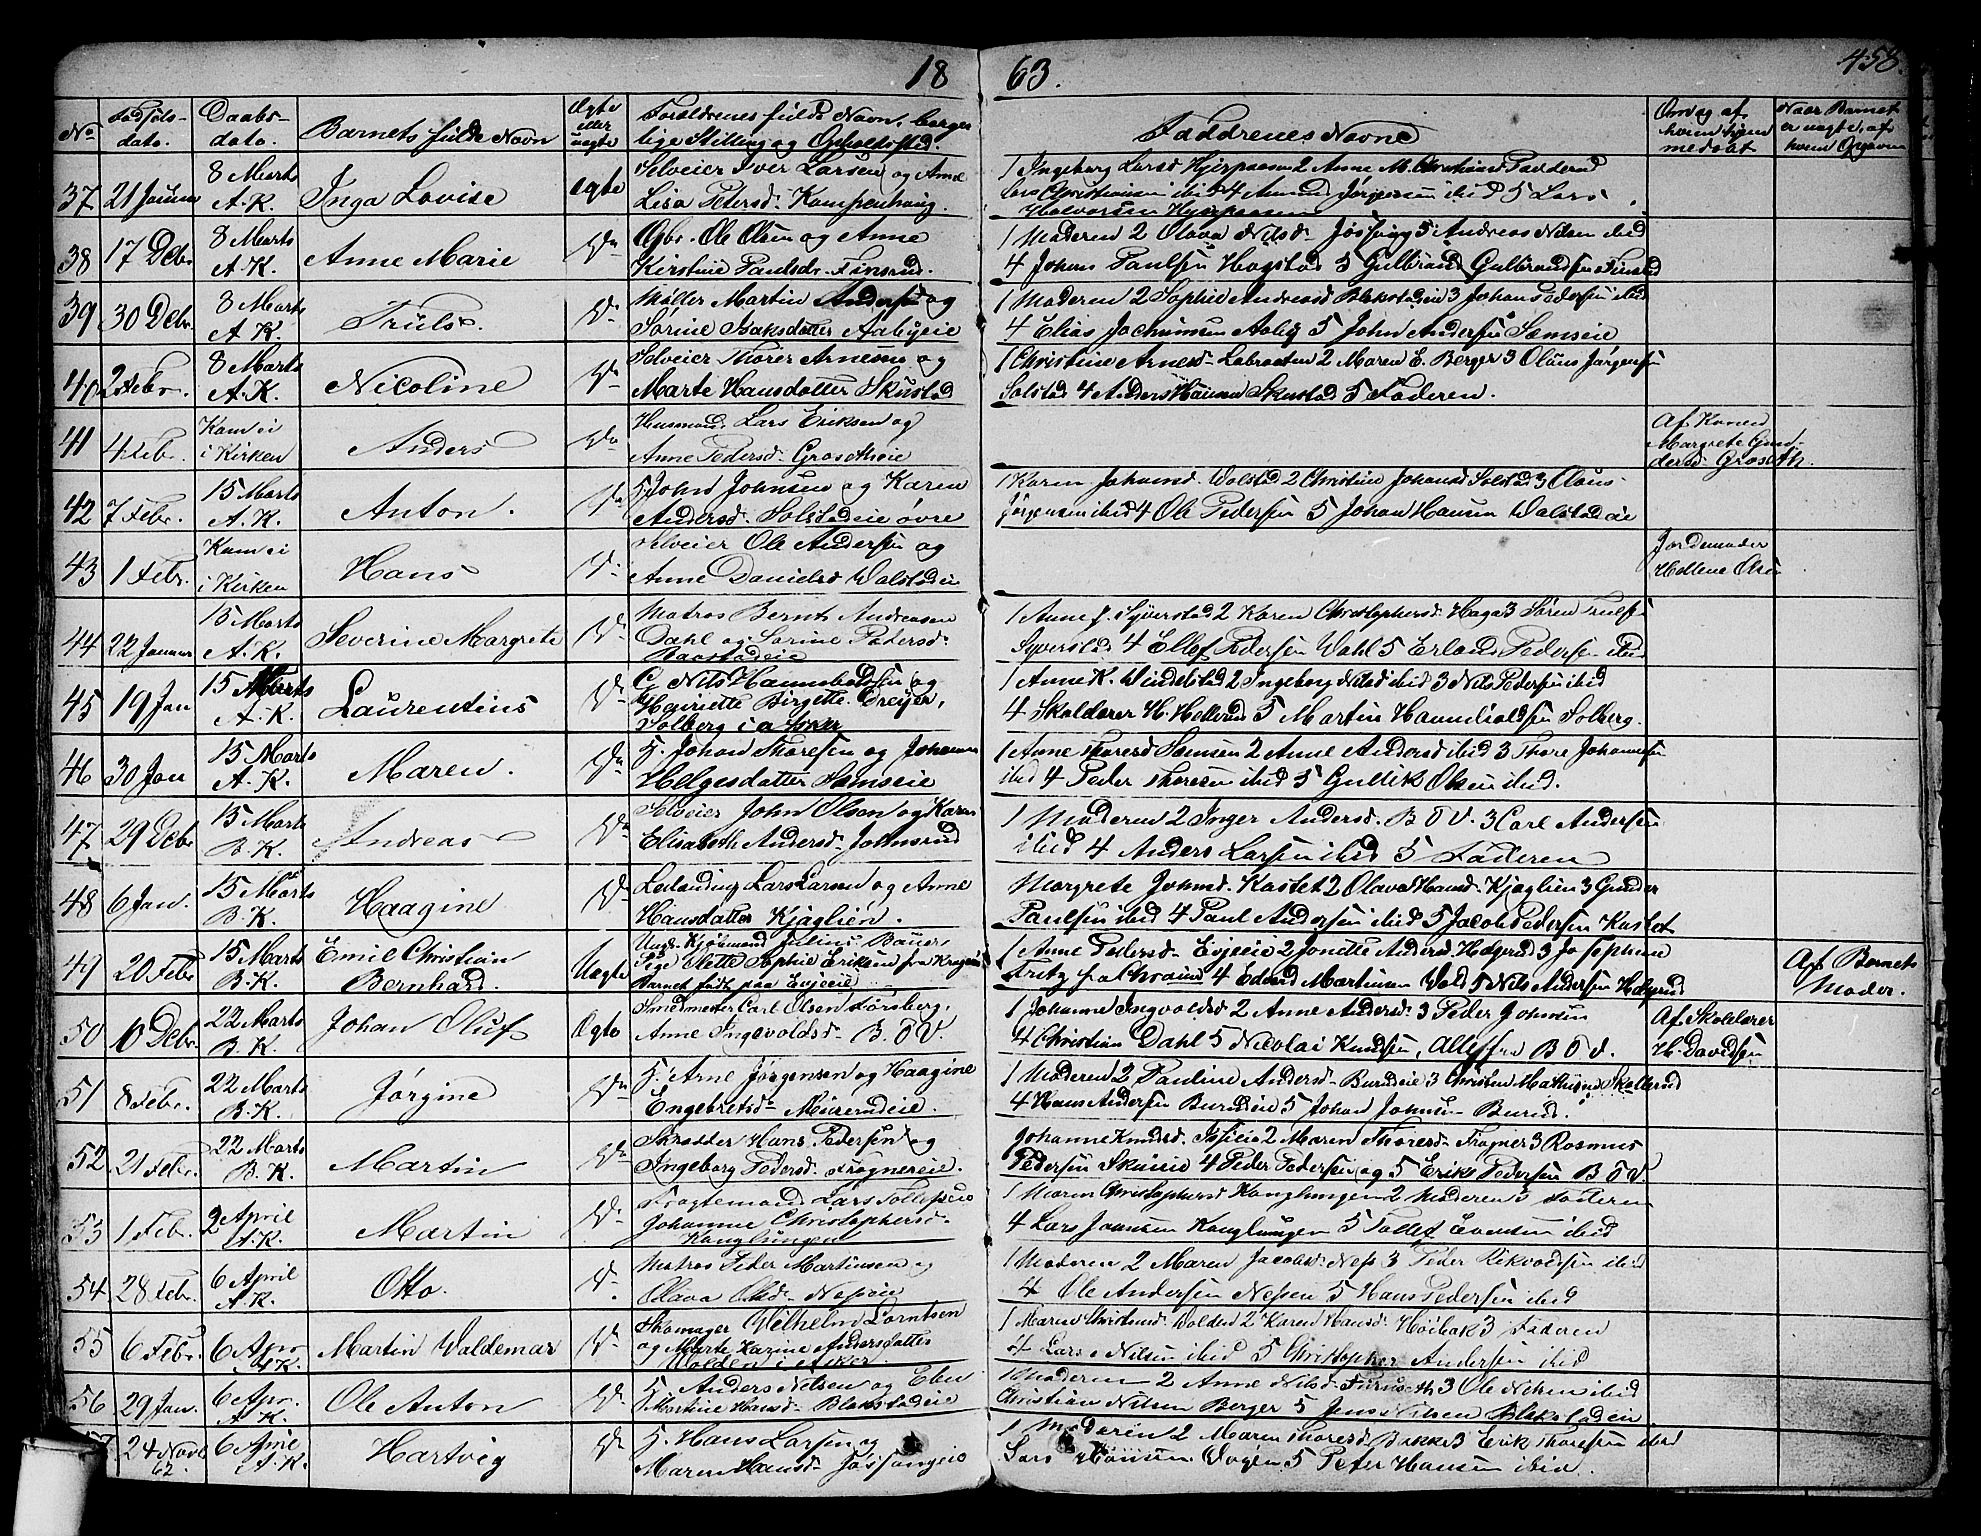 18 63. 458.
No Fødsels- dato. Daabs- dato. Barnets fulde Navn Ægte eller uægte Forældrenes fulde Navn, borger lige Stilling og Opholdssted. Faddrenes Navne Om og af hvem hjem medoat Naar Barnet er uægte, af hvem Opgaven
37 21 Januar 8 Marts A.K. Inga Lovise Ægte Selveier Iver Larsen og Anne
Lisa Petersd. Kampenhaug. 1 Ingeborg Larsd Hjerpaasen 2 Anne M. Christiansd
Lars Christiansen ibid 4 Amund Jørgensen ibid 5 Lars
Halvorsen Hjerpaasen
38 17 Debr. 8 Marts A.K. Anne Marie Do Gbr. Ole Olsen og Anne
Kirstine Paulsdr. Finsrud. 1 Moderen 2 Olava Nilsd. Jøssong 3 Andreas Nilsen ibid
4 Johan Paulsen Hogstad 5 Gulbrand Gulbrandsen
39 30 Debr. 8 Marts A.K. Truls. Do Møller Martin Andersen og
Sørine Isaksdatter Aabyeie 1 Moderen 2 Sophie Andreasd Blakstadeie 3 Johan Pedersen ibid
4 Elias Jochumsen Aaby 5 John Andersen Semseie
40 2 Febr. 8 Marts A.K. Nicoline Do Selveier Thorer Arnesen og
Marte Hansdatter Skustad 1 Christine Arnesd. Labraaten 2 Maren E. Berger 3 Olaus Jørgensen
Solstad 4 Anders Hansen Skustad 5 Faderen.
41 4 Febr. Kom ei i Kirken Anders Do Husmand Lars Eriksen og
Anne Pedersd. Grosetheie Af Konen
Margrete Gun-
dersd. Groseth.
42 7 Febr. 15 Marts A.K. Anton. Do John Johnsen og Karen
Andersd. Solstadeie øvre 1 Karen Johansd. Wolstad 2 Christine Johansd Solstad 3 Olaus
Jørgensen ibid 4 Ole Pedersen 5 Johan Hansen Walstadeie
43 1 Febr. Kom ei i Kirken Hans Do Selveier Ole Andersen og
Anne Danielsd Walstadeie Jordemoder
Hellene Olsen
44 22 Januar 15 Marts A.K. Severine Margrete Do Matros Bernt Andreasen
Dahl og Sørine Pedersd.
Baastadeie 1 Anne J. Syverstad 2 Karen Christophersd. Haga 3 Søren Truelsen
Syverstad 4 Ellef Pedersen Dahl 5 Erland Pedersen ibid
45 19 Jan 15 Marts A.K. Laurentius Do G. Nils Hannibalsen og
Henriette Birgitte Dreyer,
Solberg i Asker 1 Anne K. Windelstad 2 Ingeborg Nilsd ibid 3 Nils Pedersen ibid
4 Skolelærer H. Hellerud 5 Martin Hannibalsen Solberg.
46 30 Jan 15 Marts A.K. Maren. Do 5. Johan Thoresen og Johanne
Helgesdatter Semseie 1 Anne Thoresd Semsen 2 Anne Andersd ibid 3 Thore Johannesen
ibid 4 Peder Thoresen ibid 5 Gullik Olsen ibid.
47 29 Debr 15 Marts B.K. Andreas Do Selveier John Olsen og Karen
Elisabeth Andersd. Johnsrud 1 Moderen 2 Inger Andersd. B O V. 3 Carl Andersen
ibid 4 Anders Larsen ibid 5 Faderen
48 6 Jan. 15 Marts B.K. Haagine Do Losianding Lars Larsen og Anne
Hansdatter Kjaglien. Margrete Johnsd. Kastet 2 Olava Hansd. Kjaglien 3 Gunder
Paulsen ibid 4 Paul Andersen ibid 5 Jacob Pedersen Kastet
49 20 Febr 15 Marts B.K. Emil Christian
Bernhard. Uægte Ungk. Kjøbmand Julius Bauer,
Pige Olette Sophie Eriksen fra Kragerø
Barnet født paa Evjeeie 1 Anne Pedersd. Evjeeie 2 Jonette Andersd. Helgerud 3 Josephine
Fritz fra Chrania 4 Edvard Martinsen Wold 5 Nils Andersen Helgerud Af Barnets
Moder.
50 10 Debr. 22 Marts B.K. Johan Oluf Ægte Smedmester Carl Olsen Forsberg,
Anne Ingevoldsd. B. O V. 1 Johanne Ingvoldsd 2 Anne Andersd. 3 Peder Johnsen
4 Christian Dahl 5 Nicolai Knudsen, Alle fra B O V. Af Skolelærer
H. Davidsen
51 8 Febr. 22 Marts B.K. Jørgine Do 5. Arne Jørgensen og Haagine
Engebretsd. Muremdeie. 1 Moderen 2 Pauline Andersd. Burudeie 3 Christen Mathisen Skollerud
4 Hans Andersen Burudeie 5 Johan Johnsen Burud.
52 21 Febr. 22 Marts B.K. Martin Do Skrædder Hans Pedersen og
Ingeborg Pedersd. Frognereie. Johanne Knudsd. Isieie 2 Maren Thoresd. Frogner 3 Rasmus
Pedersen Skuieie 4 Peder Pedersen og 5 Erik Pedersen B O V.
53 1 Febr. 2 April A.K. Martin Do Fragtemand Lars Tollefsen
Johanne Christophersd.
Kanglungen 1 Maren Christophersd Konglungen 2 Moderen 3 Faderen
4 Lars Jaansen Konglungen 5 Tollef Evensen ibid
54 28 Febr. 6 April A.K. Otto. Do Matros Peder Martinsen og
Olava Olsd. Nøseie 1 Moderen 2 Maren Jacobsd. Næs 3 Peder Rikvoldsen ibid
4 Ole Andersen Nesøen 5 Hans Pedersen ibid
55 6 Febr. 6 Apr. A.K. Martin Valdemar Do Skomager Vilhelm Lorntsen
og Marte Karine Andersdatter
Wolden i Asker 1 Maren Christensd. Wolden 2 Karen Hansd. Høibak 3 Faderen
4 Lars Nilsen ibid 5 Christopher Andersen ibid
56 29 Jan. 6 Apr. A.K. Ole Anton Do 5. Anders Nilsen og Eben
Martine Hansd. Blakstadeie 1 Moderen 2 Anne Nilsd. Furuseth 3 Ole Nilsen ibid
Christian Nilsen Berger 5 Jens Nilsen Blakstadeie
57 24 Novbr 62. 6 Apr. A.K. Hartvig Do 5. Hans Larsen og
Maren Hansd. Jøssongeie 1 Moderen 2 Maren Thoresd. Bakke 3 Erik Thoresen ibid
Lars Hansen Wogen 5 Peter Hansen ibid.